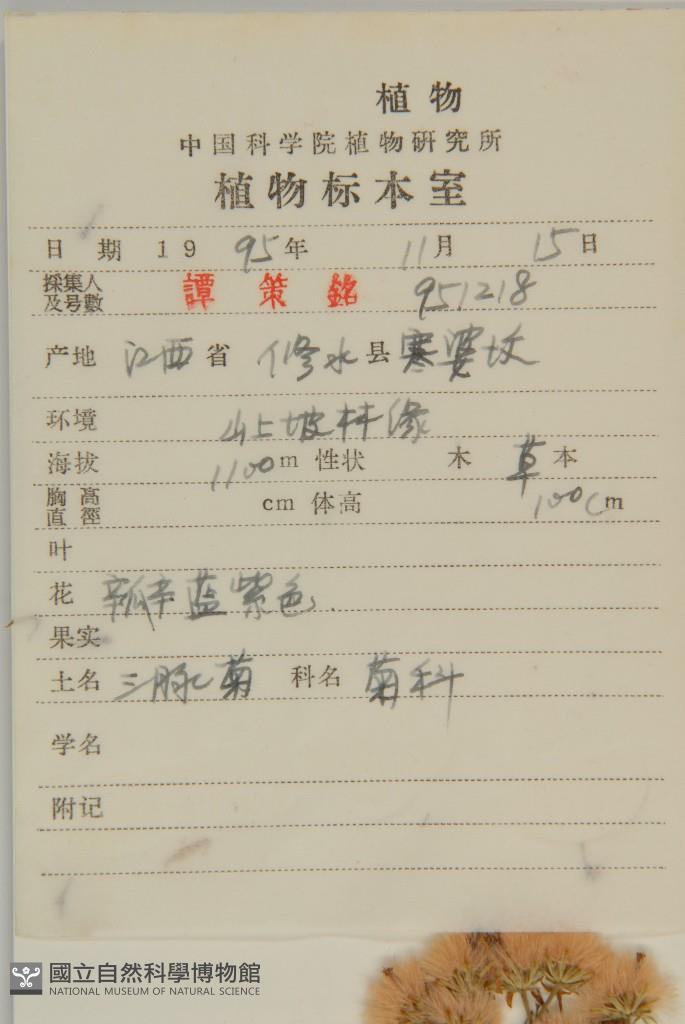 植物
中国科学院植物研究所
植物标本室
日 期 19 95年 11月 15日
採集人及号數 譚策銘 951218
产地 江西省 修水县 寒婆坟
环境 山上坡林缘
海拔 1100m 性状 木 草本
胸高直徑 cm 体高 100cm
叶
花 瓣蓝紫色
果实
土名 三脉菊 科名 菊科
学名
附记
國立自然科學博物館
NATIONAL MUSEUM OF NATURAL SCIENCE